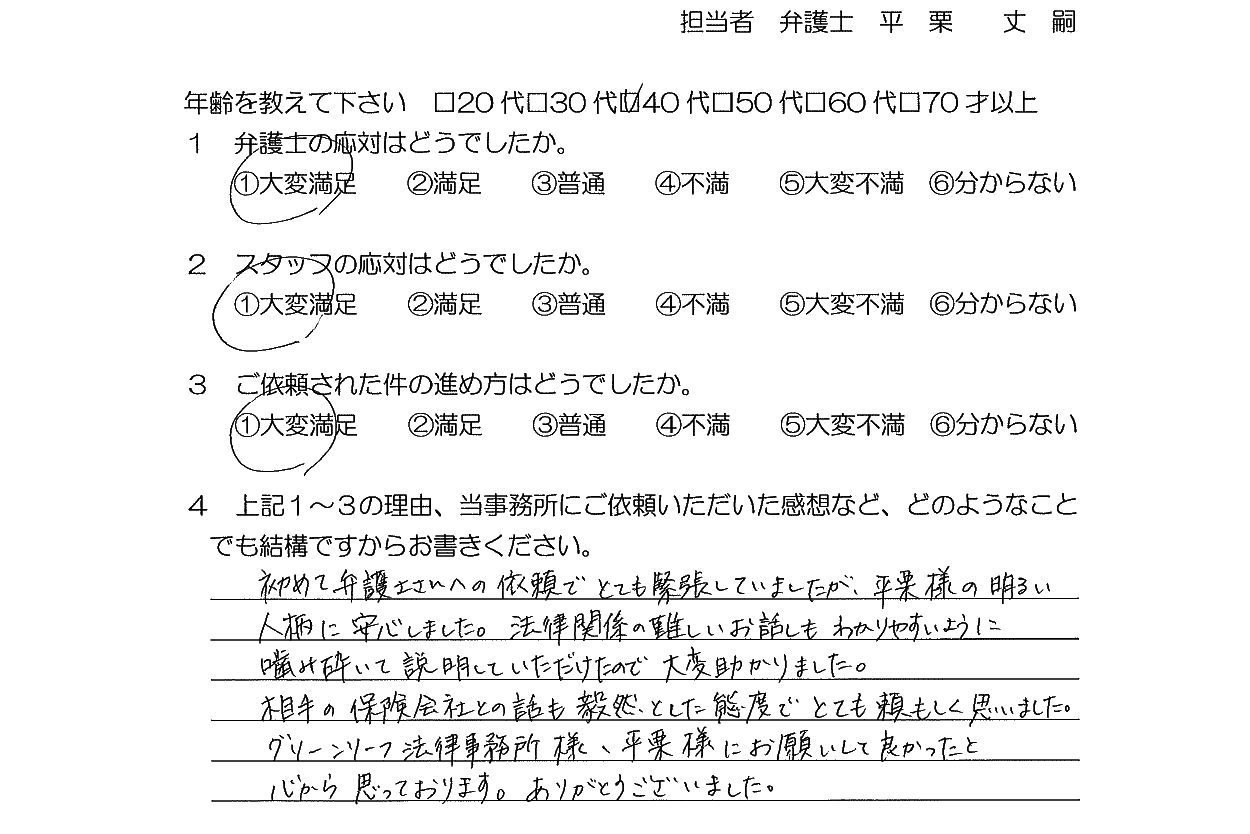 担当者　弁護士　平　栗　　丈　嗣
年齢を教えて下さい　□20代□30代☑40代□50代□60代□70才以上
１　弁護士の応対はどうでしたか。
①大変満足　　②満足　　③普通　　④不満　　⑤大変不満　⑥分からない
２　スタッフの応対はどうでしたか。
①大変満足　　②満足　　③普通　　④不満　　⑤大変不満　⑥分からない
３　ご依頼された件の進め方はどうでしたか。
①大変満足　　②満足　　③普通　　④不満　　⑤大変不満　⑥分からない
４　上記１～３の理由、当事務所にご依頼いただいた感想など、どのようなこと
でも結構ですからお書きください。
初めて弁護士さんへの依頼でとても緊張していましたが、平栗様の明るい
人柄に安心しました。法律関係の難しいお話しもわかりやすいように
噛み砕いて説明していただけたので大変助かりました。
相手の保険会社との話も毅然とした態度でとても頼もしく思いました。
グリーンリーフ法律事務所様、平栗様にお願いして良かったと
心から思っております。ありがとうございました。